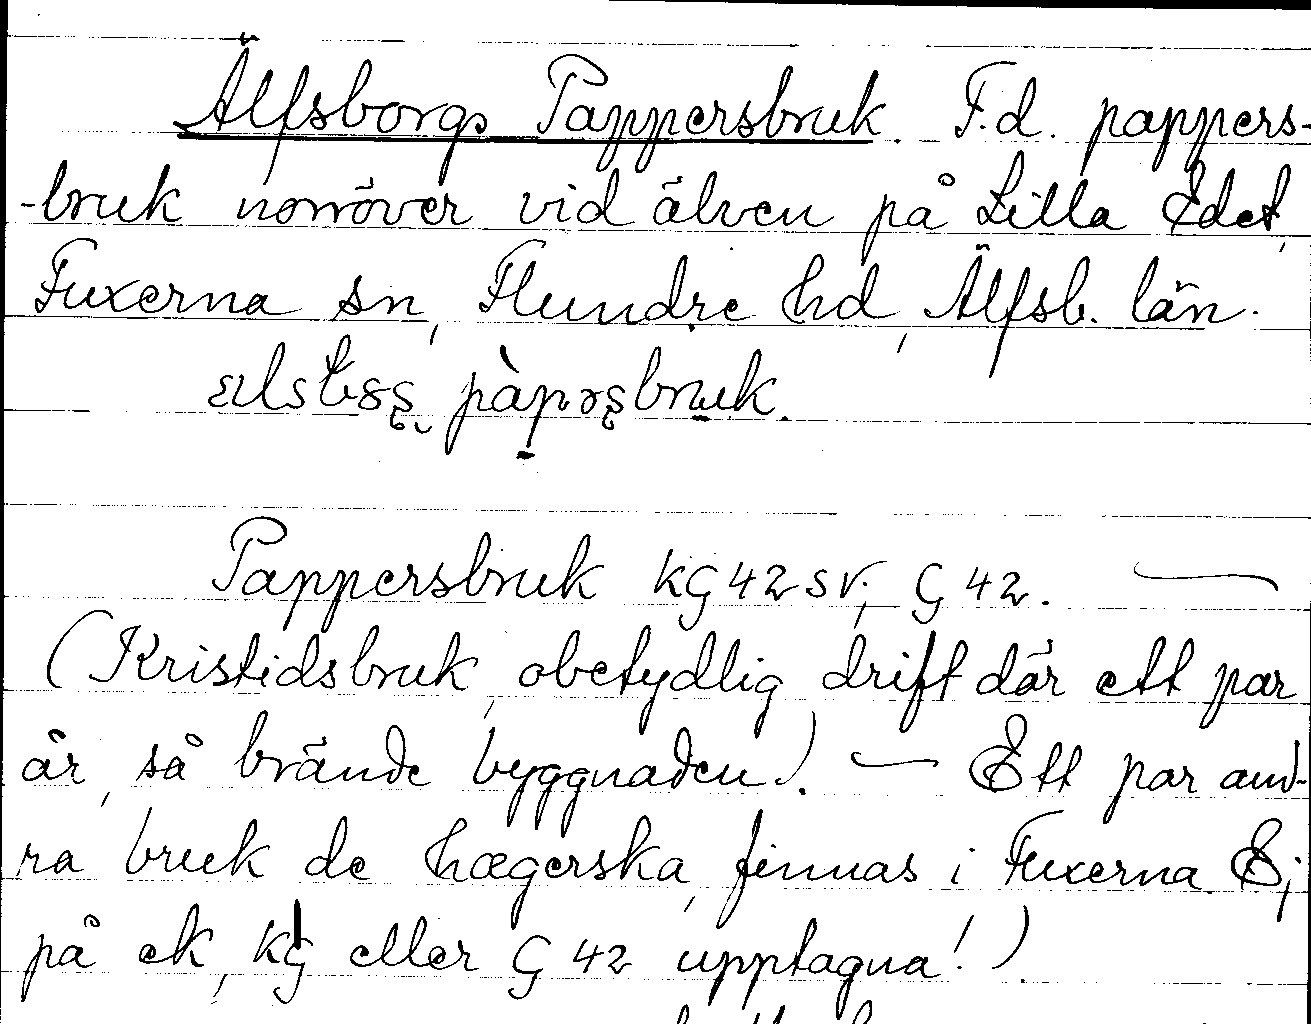 Älfsborgs Pappersbruk. F.d. pappers-
-bruk norröver vid älven på Lilla Edet,
Fuxerna sn, Flundre hd, Älfsb. län.
pàpəʂbruk.
Pappersbruk KG 42 SV; G 42. —
(Kristidsbruk, obetydlig drift där ett par
år, så brände byggnaden). — Ett par and-
ra bruk de hægerska, finnas i Fuxerna. Ej
på ek, KG eller G 42 upptagna!)